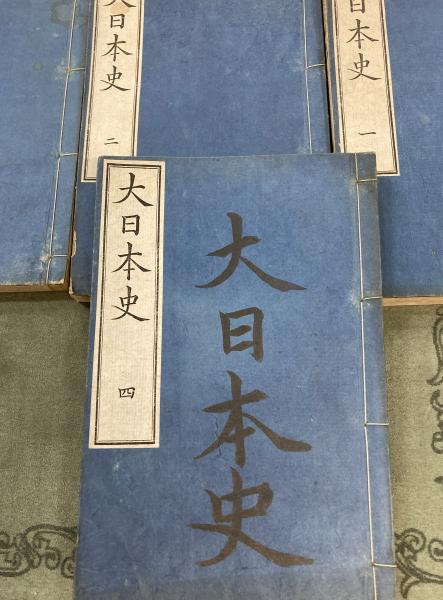 大日本史 一
大日本史 二
大日本史 四
大日本史